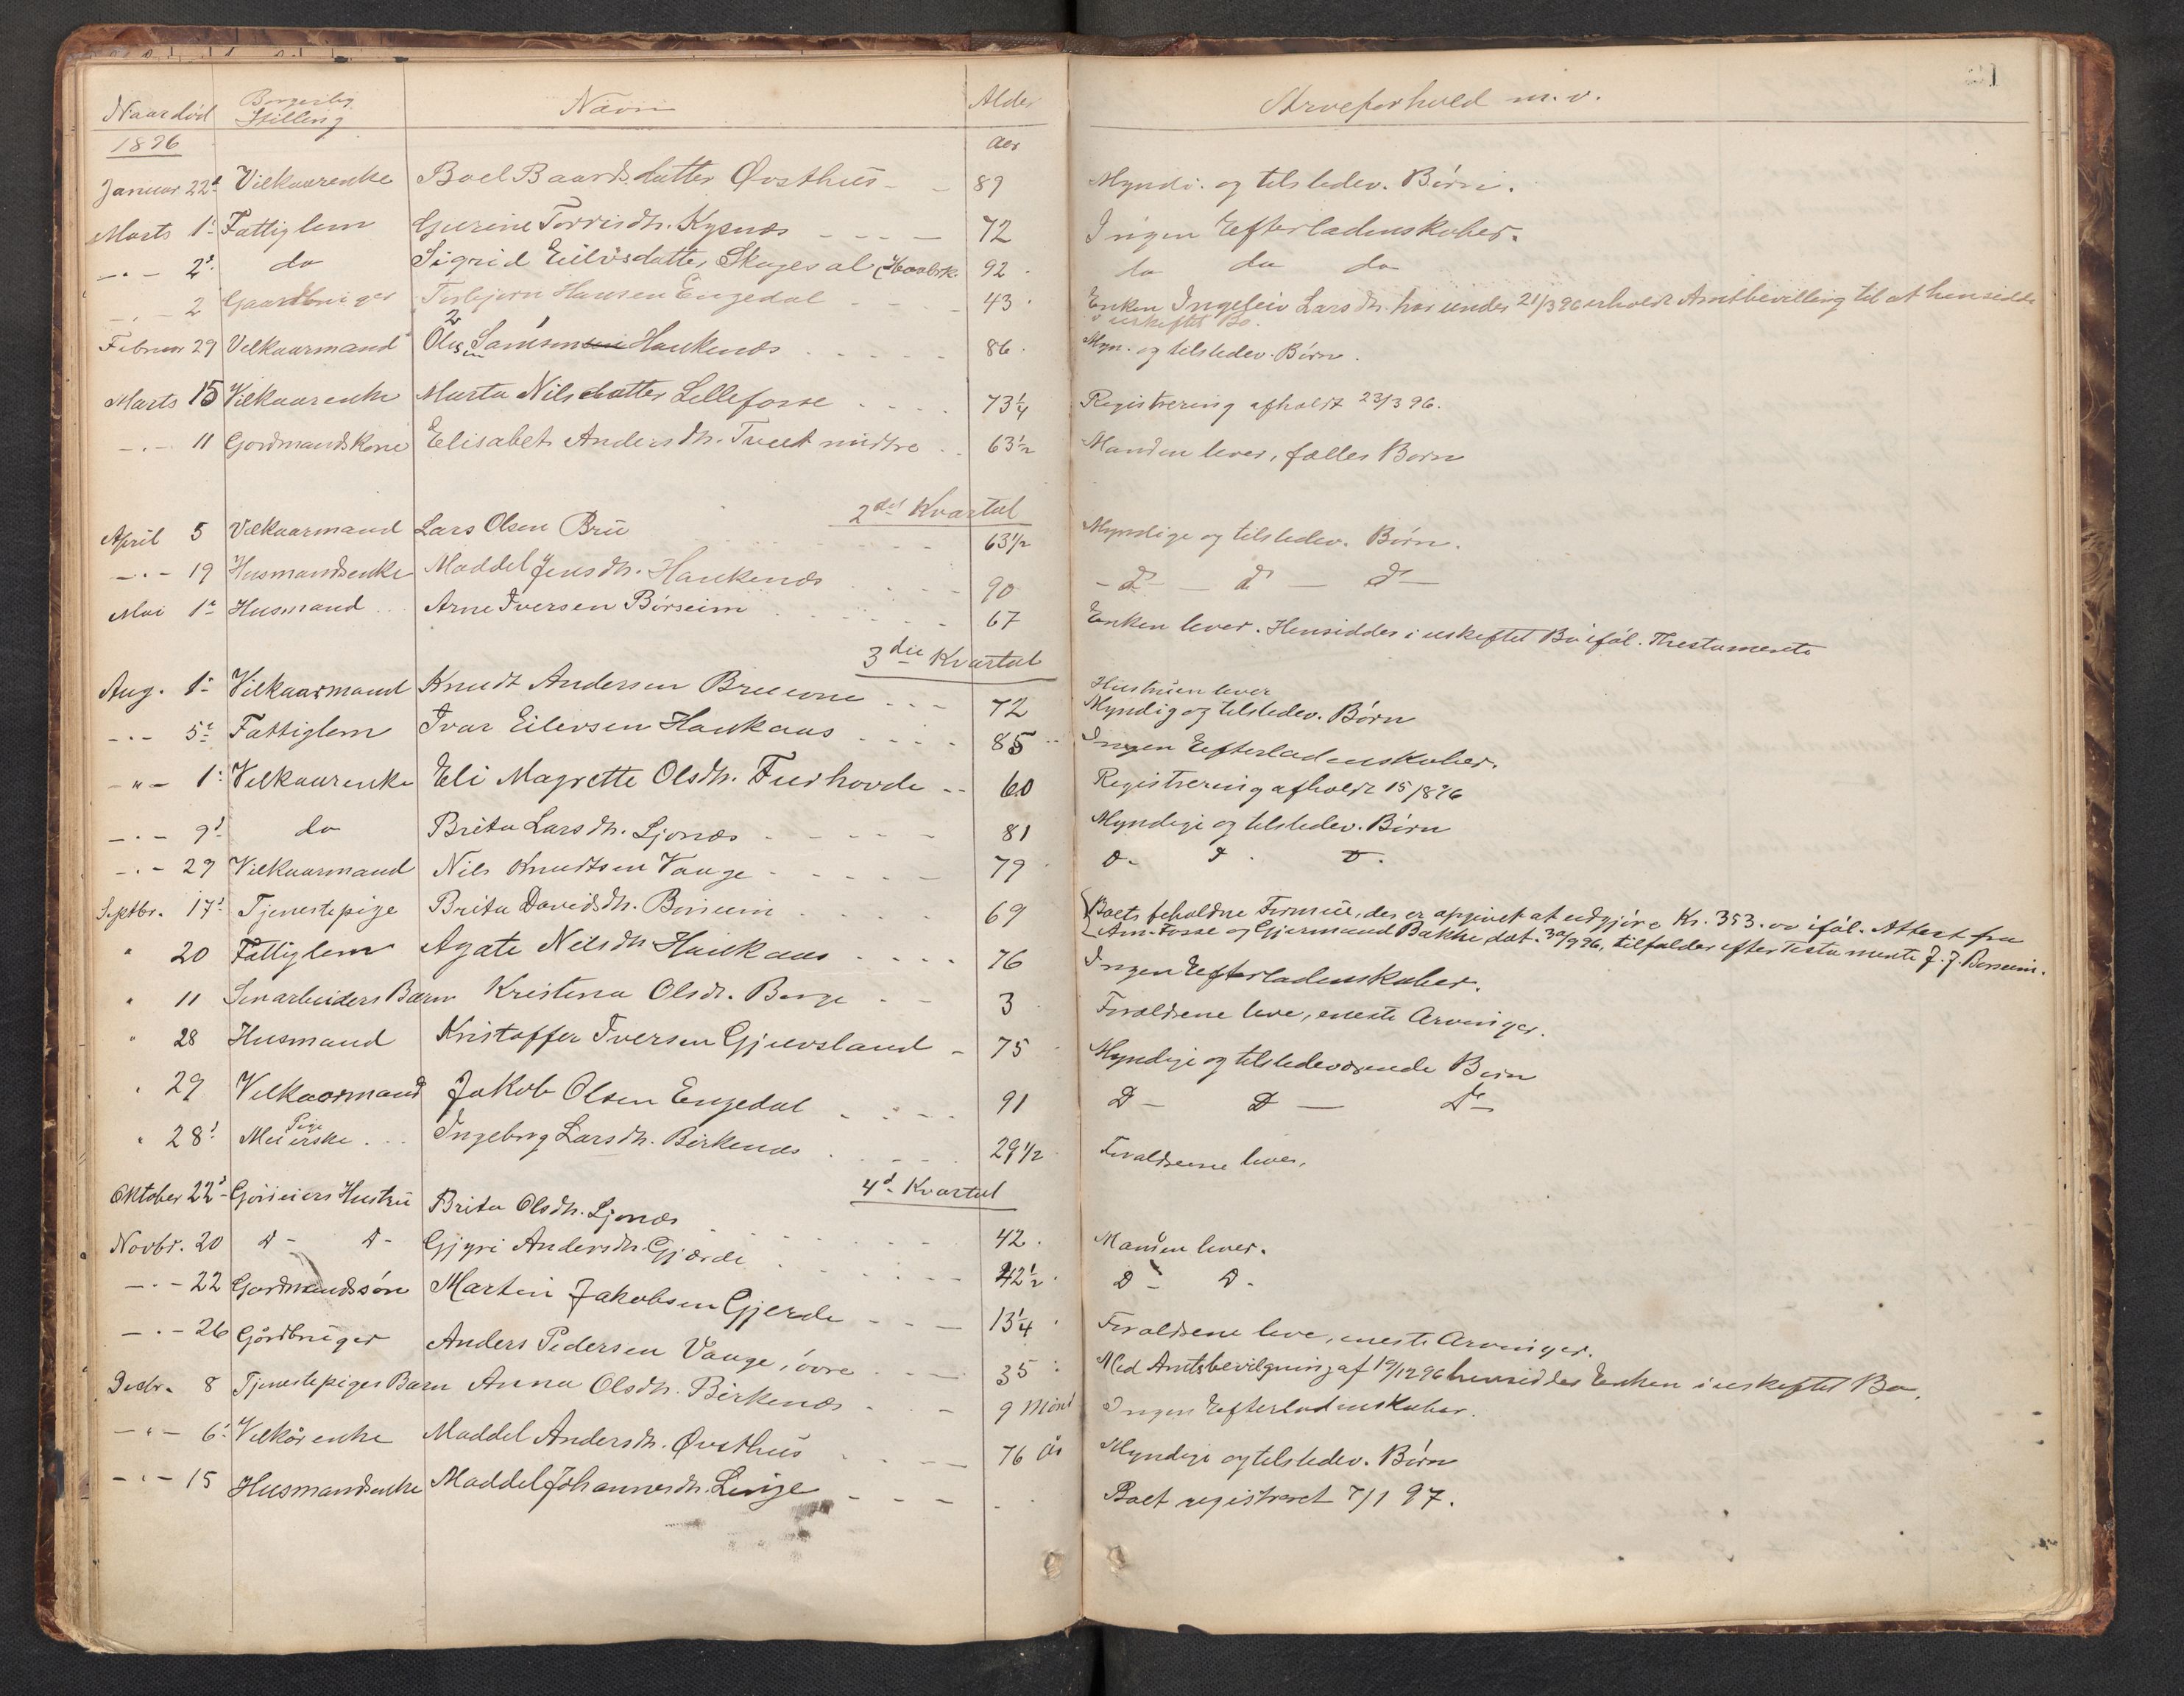 Naar død Borgerlig Stilling Navn Alder Arveforhold m.v.
1896 Aar
Januar 22d Vilkaarenke Boel Baardsdatter Øvsthus 89 Myndi. og tilstedev. Børn.
Marts 1 Fattiglem Gurine Torrisdtr. Kysnæs 72 Ingen Efterladenskaber.
2 do Sigrid Eilivsdatter Skuges al 92 do do do
2 Gaardbruger Torbjørn Hansen Engedal 43 Enken Ingeleiv Larsdtr. har under 21/3 96 erholdt Amtbevilling til at hensidde
i uskiftet Bo.
Februar 29 Vilkaarmand Ole Samsen Haukenæs 86 Myn. og tilstedev. Børn.
Marts 15 Vilkaarenke Marta Nilsdatter Lillefosse 73 1/4 Registrering afholdt 23/3 96.
11 Gordmandskone Elisabet Andersdtr. Tveit midtre 63 1/2 Manden lever, fælles Børn
2det Kvartal
April 5 Vilkaarmand Lars Olsen Bru 63 1/2 Myndige og tilstedev. Børn.
19 Husmandsenke Maddel Jensdtr. Haukenæs 90 - d - d - d -
Mai 1 Husmand Arne Iversen Børseim 67 Enken lever. Hensidder i uskiftet Bo iføl. Thestamente
3die Kvartal
Aug. 1 Vilkaarmand Knudt Andersen Bruun 72 Hustruen lever
Myndig og tilstedev. Børn
5 Fattiglem Ivar Eilevsen Haukaas 85 Ingen Efterladenskaber.
1 Vilkaarenke Eli Magrette Olsdtr. Furhovde 60 Registrering afholdt 15/8 96
9 do Brita Larsdtr. Ljonæs 81 Myndige og tilstedev. Børn
29 Vilkaarmand Nils Knudtsen Vange 79 D. D. D.
Septbr. 17 Tjenestepige Brita Davidsdtr. Børseim 69 Boets beholdne Formue, der er opgivet at udgjøre Kr. 353.00 iføl. Attest fra
Arn. Fosse og Gjermund Bakke dat. 30/9 96, tilfalder efter Testamente J. J. Børseim.
20 Fattiglem Agate Nilsdtr Haukaas 76 Ingen Efterladenskaber.
11 Barn Kristina Olsdt. Berge 3 Forældrene leve, eneste Arvinger.
28 Husmand Kristoffer Iversen Gjuvsland 75 Myndige og tilstedeværende Børn
29 Vilkaarmand Jakob Olsen Engedal 91 D - D - D -
28 Pige Ingeborg Larsdtr. Birkenæs 29 1/2 Forældrene lever.
4d Kvartal
Oktober 22 Gårdeiers Hustru Brita Olsdtr. Ljonæs 42. Manden lever.
Novbr. 20 D - D - Gjyri Andersdtr. Gjærde 42 1/2 D - D -
22 Gordmandssøn Martin Jakobsen Gjerde 13 1/4 Forældrene leve, eneste Arvinger.
26 Gårdbruger Anders Pedersen Vange, øvre 35 Med Amtsbevilgning af 19/12 96 hensidder Enken i uskiftet Bo.
Decbr. 8 Tjenestepiges Barn Anna Olsdtr. Birkenæs 9 Mdnd Ingen Efterladenskaber.
6 Vilkårenke Maddel Andersdtr. Øvsthus 76 År Myndige og tilstedev. Børn
15 Husmandsenke Maddel Johannesdtr. Linge Boet registreret 7/1 97.